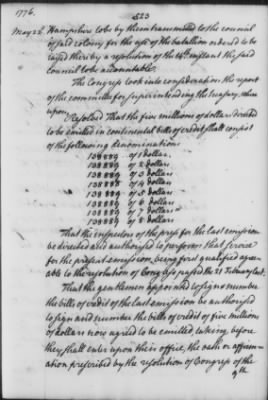 1776.
523
May 22d Hampshire to be by them transmitted to the council
of said colony for the use of the battalion ordered to be
raised there by a resolution of the 14th instant the said
Council to be accountable.
The Congress took into consideration the report
of the committee for superintending the treasury, where
upon
Resolved That the five millions of dollars directed
to be emitted in continental bills of credit shall consist
of the following denominations
138889 of 1 dollar.
138889 of 2 dollars
138889 of 3 dollars
138888 of 4 dollars
138889 of 5 dollars
138889 of 6 dollars
138889 of 7 dollars
138889 of 8 dollars
That the inspectors of the press for the last emission
be directed and authorised to perform that service
for the present emission, being first qualified agree-
able to the resolution of Congress passed the 21 February last.
That the gentlemen appointed to sign & number
the bills of credit of the last emission be authorised
to sign and number the bills of credit of five millions
of dollars now agreed to be emitted, taking, before
they shall enter upon their office, the oath or affirm-
ation prescribed by the resolution of Congress of the
9th